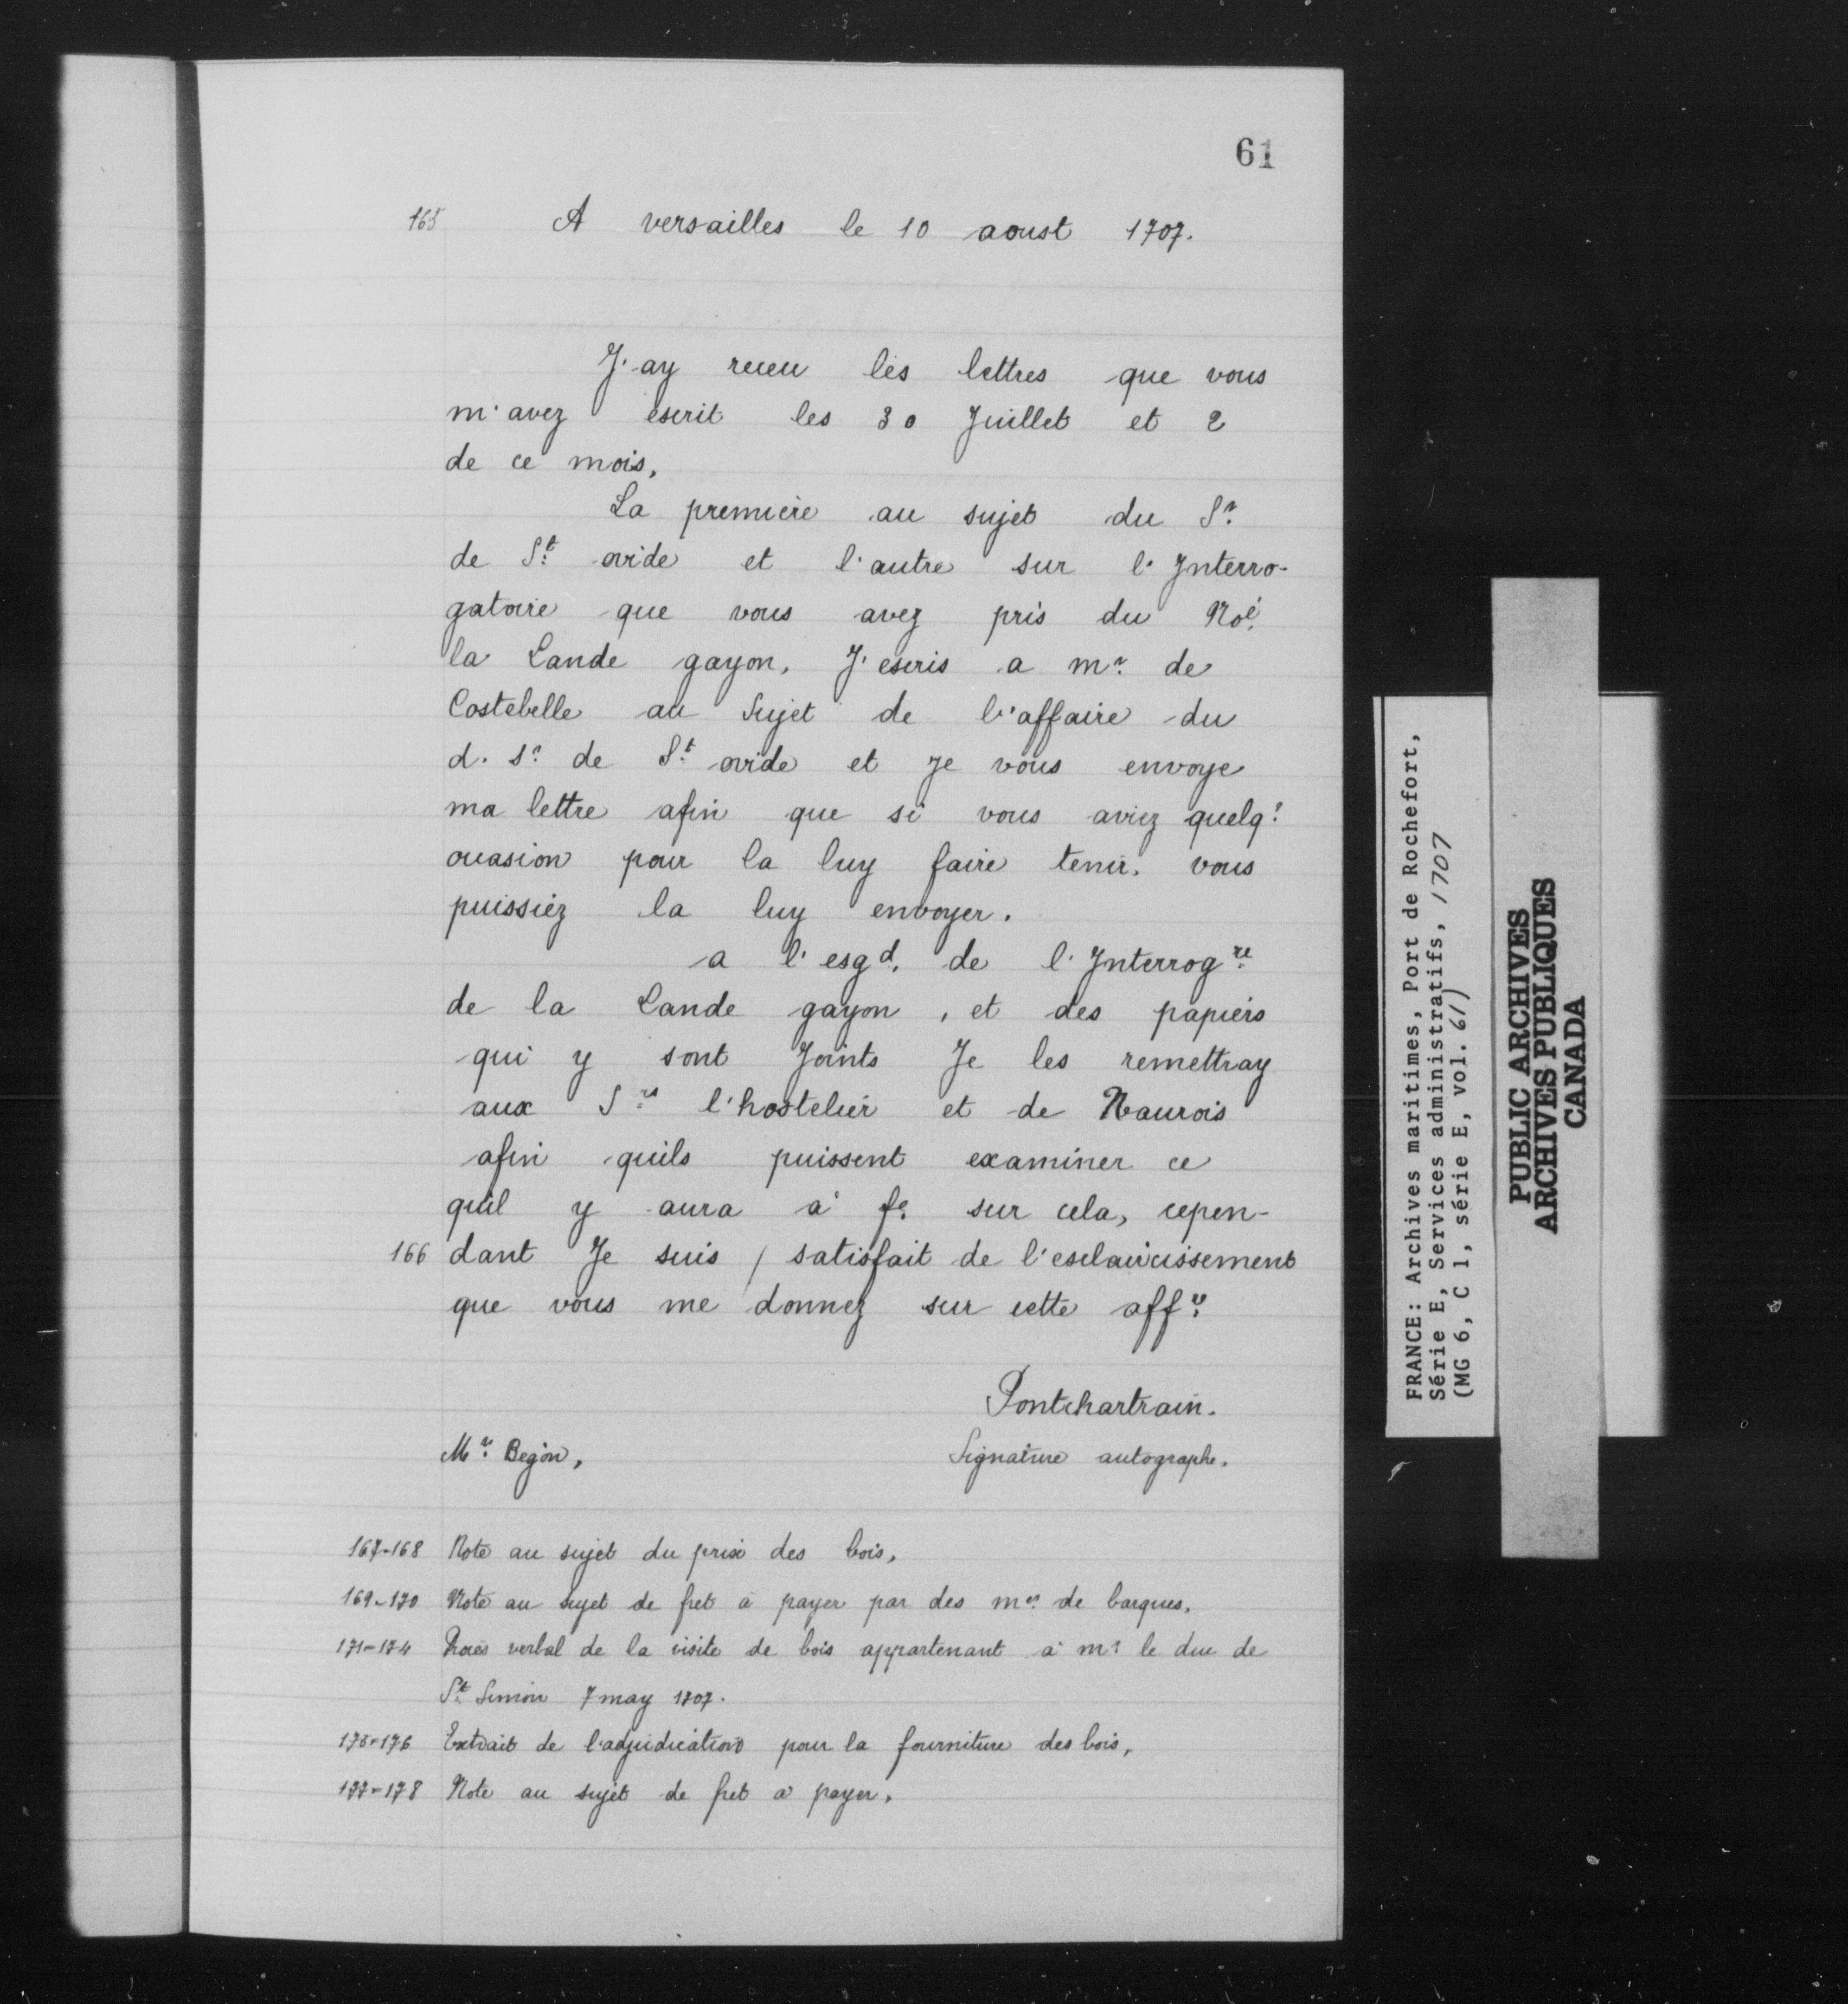 61
165 A versailles le 10 aoust 1707.
J'ay receu les lettres que vous
m'avez escrit les 30 Juillet et 2
de ce mois,
La premiere au sujet du Sr.
de St. ovide et l'autre sur l'Interro-
gatoire que vous avez pris du Noé.
la Lande gayon, J'escris a mr. de
Costebelle au Sujet de l'affaire du
d. sr. de St. ovide et Je vous envoye
ma lettre afin que si vous aviez quelq.
occasion pour la luy faire tenir, vous
puissiez la luy envoyer.
a l'esgd. de l'Interrogre.
de la Lande gayon, et des papiers
qui y sont Joints Je les remettray
aux Srs. l'hostelier et de Naurois
afin quils puissent examiner ce
quil y aura à fe. sur cela, cepen-
166 dant Je suis / satisfait de l'esclaircissement
que vous me donnez sur cette affe.
Pontchartrain.
Mr. Begon, Signature autographe.
167-168 Note au sujet du prix des bois,
169-170 Note au sujet de fret à payer par des mes. de barques,
171-174 Procès verbal de la visite de bois appartenant à mr. le duc de
St. Simon 7 may 1707.
175-176 Extrait de l'adjudication pour la fourniture des bois,
177-178 Note au sujet de fret à payer,
FRANCE: Archives maritimes, Port de Rochefort,
Série E, Services administratifs, 1707
(MG 6, C 1, série E, vol. 61)
PUBLIC ARCHIVES
ARCHIVES PUBLIQUES
CANADA